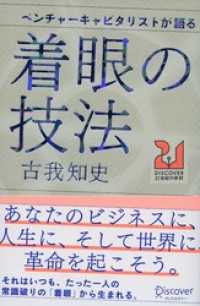 ベンチャーキャピタリストが語る
着眼の
技法
古我知史
21
DISCOVER
あなたのビジネスに、
人生に、そして世界に
革命を起こそう。
それはいつも、たった一人の
常識破りの「着眼」から生まれる。
Discover